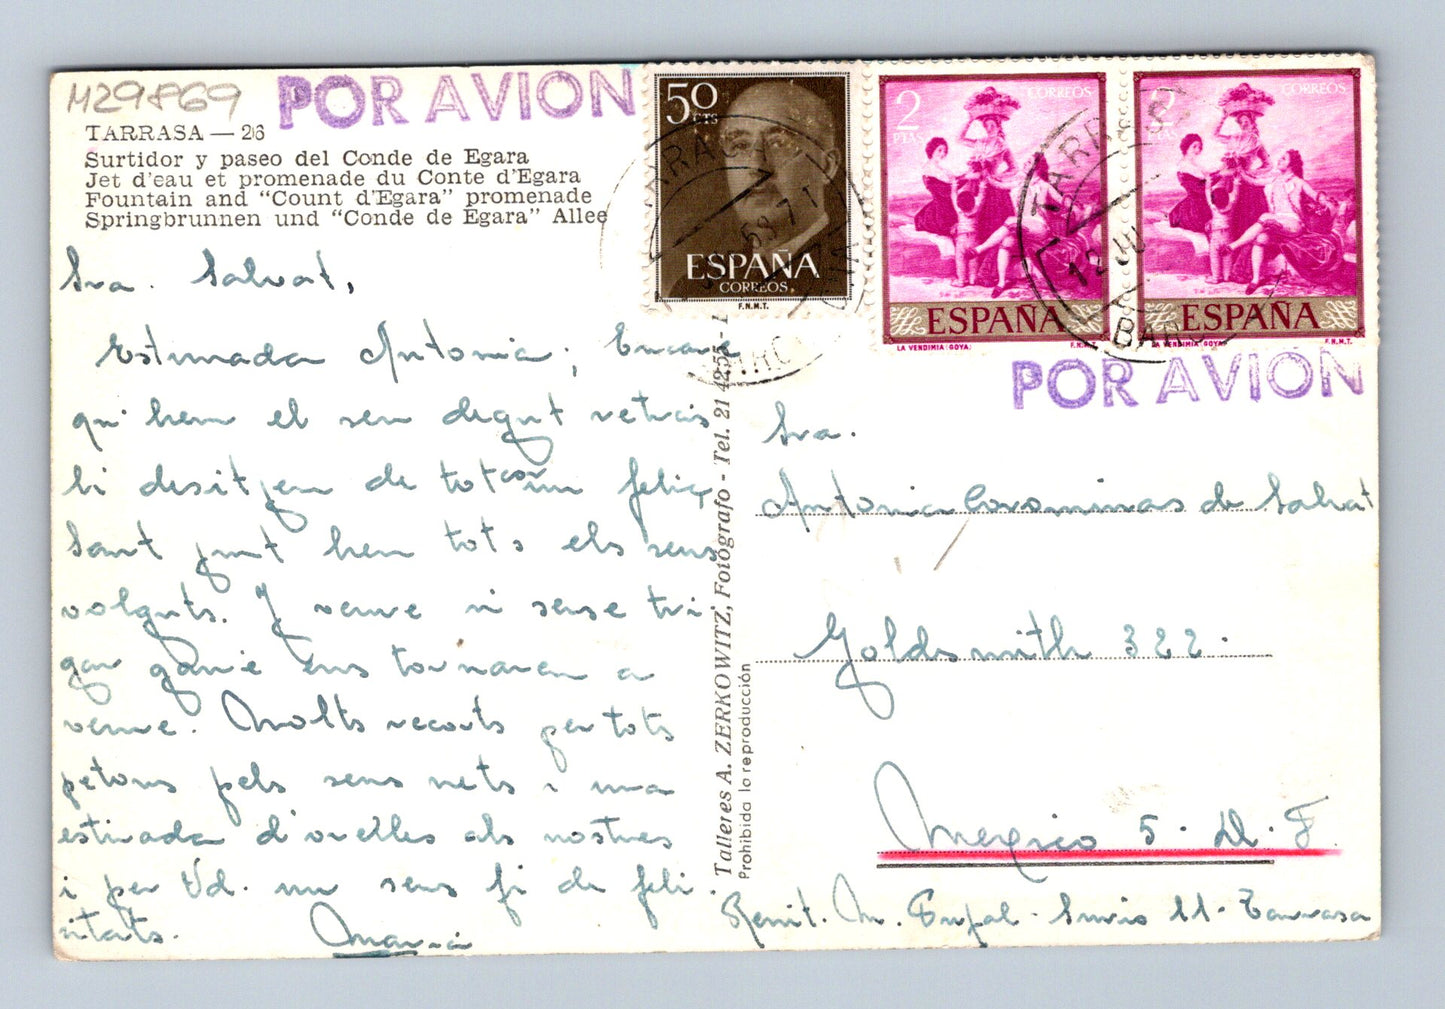 M29869
POR AVION
TARRASA — 26
Surtidor y paseo del Conde de Egara
Jet d'eau et promenade du Conte d'Egara
Fountain and "Count d'Egara" promenade
Springbrunnen und "Conde de Egara" Allee
50
CTS
ESPAÑA
CORREOS
F.N.M.T.
2
PTAS
CORREOS
ESPAÑA
LA VENDIMIA (GOYA)
2
PTAS
CORREOS
ESPAÑA
LA VENDIMIA (GOYA)
F.N.M.T.
POR AVION
Sra. Salvat,
Estimada Antonia; Encare
qu'hem el seu degut retras
li desitjem de tot cor un feliç
Sant junt hem tots els seus
volguts. I veure si sense tri
gar gaire ens tornarem a
veure. Molts recorts per tots
petons pels seus nets i una
estirada d'orelles als nostres
i per Vd. un sens fi de feli
citats.
Maria
Talleres A. ZERKOWITZ, Fotógrafo - Tel. 21 42 55 -
Prohibida la reproducción
Sra.
Antonia Corominas de Salvat
Goldsmith 322.
Mexico 5. D. F.
Remit. M. Pujal - Tarrasa